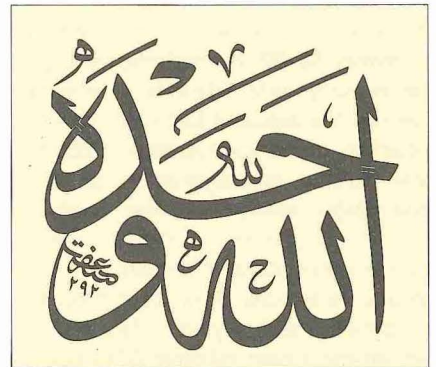 الله وحده
٢٩٢